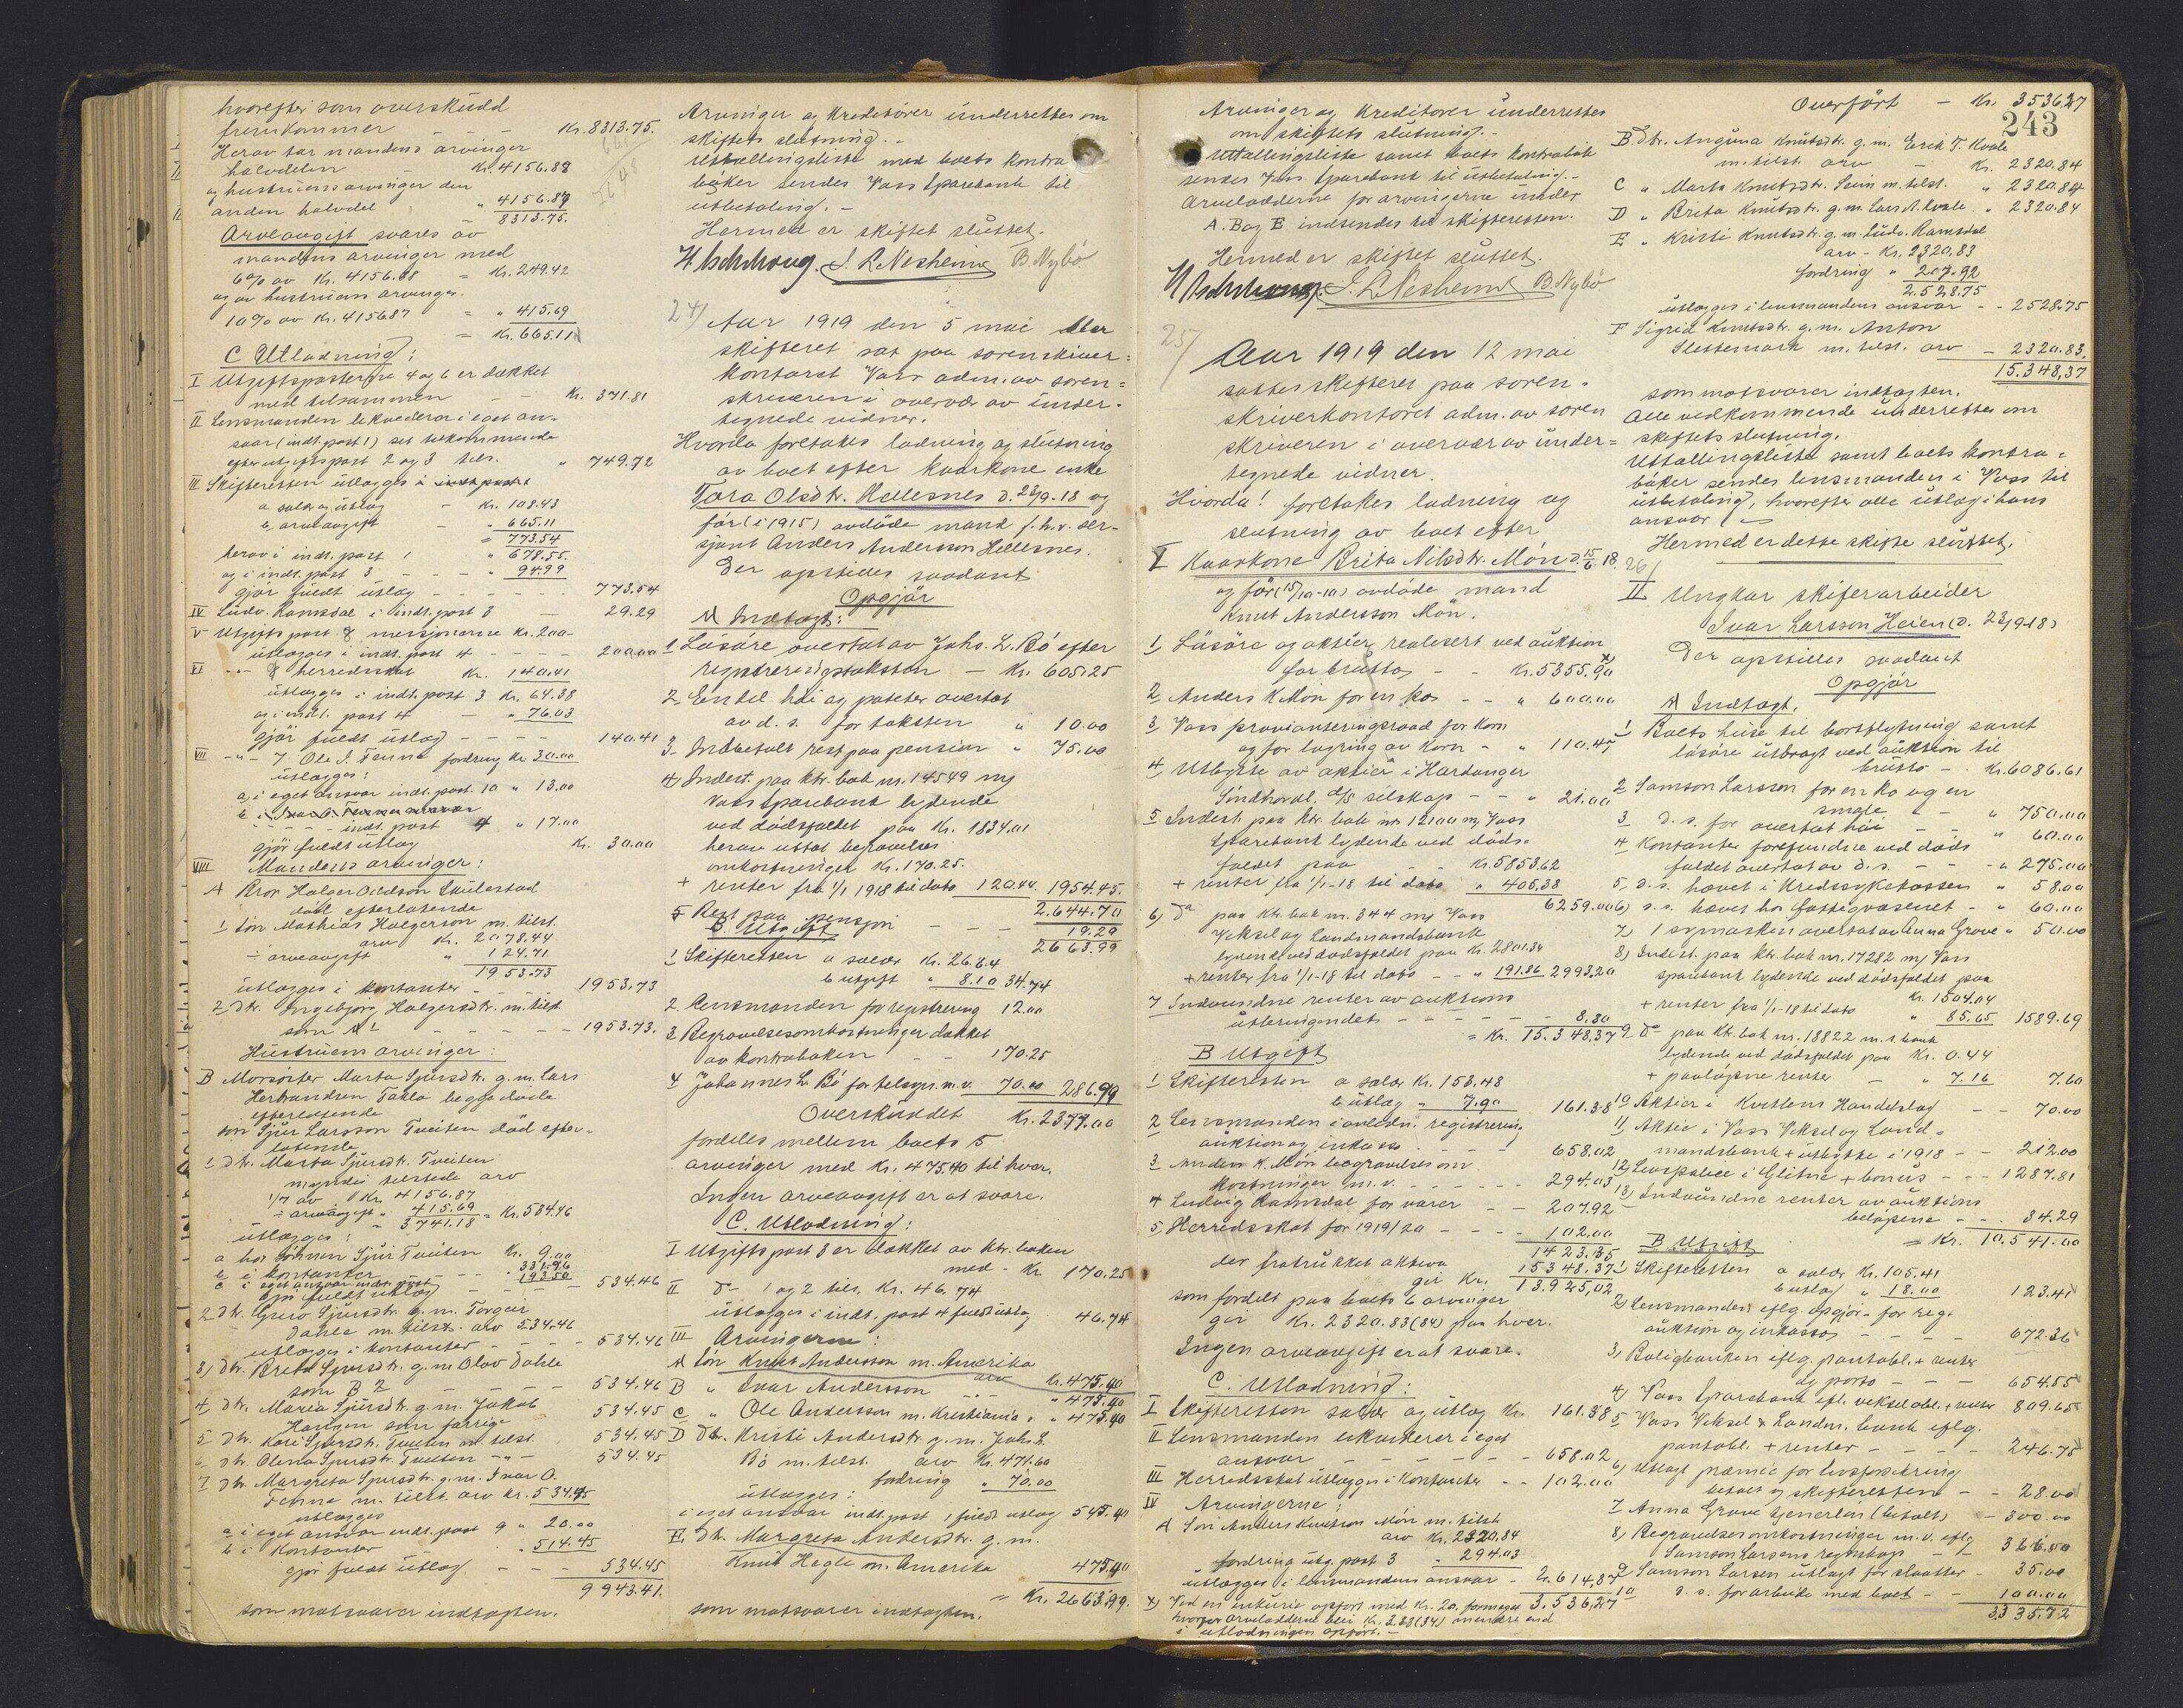 hvorefter som overskudd
fremkommer - - - Kr. 8313.75.
Herav tar mandens arvinger
halvdelen - Kr. 4156.88
og hustruens arvinger den
anden halvdel " 4156.87
8313.75.
Arveavgift svares av
mandens arvinger med
6% av Kr. 4156.88 = Kr. 249.42
og av hustruens arvinger
10% av Kr. 4156.87 = " 415.69
= Kr. 665.11
C Utlodning:
I Utgiftsposterne 4 og 6 er dækket
med tilsammen - - Kr. 371.81
II Lensmanden likviderer i eget an-
svar (indt. post 1) sit tilkommende
efter utgiftspost 2 og 3 tils. " 749.72
III Skifteretten utlægges i indt. post 1
a salær og utlæg - Kr. 108.43
b arveavgift - " 665.11
= 773.54
herav i indt. post 1 " 678.55
og i indt. post 3 - - - " 94.99
gjør fuldt utlæg - - - - - - 773.54
IV Ludv. Ramsdal i indt. post 3 — 29.29
V Utgiftspost 8 missjonærne Kr. 200-
utlægges i indt. post 4 - - - - 200.00
VI -"- herredsskat Kr. 140.41
utlægges i indt. post 3 Kr. 64.38
og i indt. post 4 — " 76.03
gjør fuldt utlæg - - - - 140.41
VII -"- 7 Ole I. Fenne fordring Kr. 30.00
utlægges:
a, i eget ansvar indt. post 10 " 13.00
- - - - - indt. post 4 " 17.00
gjør fuldt utlæg Kr. 30.00
VIII Mandens arvinger:
A Bror Holger Oddson Skulestad
død efterlatende
1 søn Mathias Holgerson m. tilst.
arv Kr. 2078.44
÷ arveavgift " 124.71
1953.73
utlægges i kontanter - - - - 1953.73
2 dtr. Ingebjørg Holgersdtr. m. tilst.
som A 1 - - - - - 1953.73.
Hustruens arvinger:
B Morsøster Marta Sjursdtr. g. m. Lars
Herbrandsen Takla begge døde
efterlatende
søn Sjur Larsson Tveiten død efter-
latende
1 dtr. Marta Sjursdtr. Tveiten
myndig tilstede arv
1/7 av Kr. 4156.87
÷ arveavgift " 415.69
" 3741.18 = Kr. 534.46
utlægges:
a hos Sjur Tveiten Kr. 9.00
b i kontanter - - - - 331.96
c i eget ansvar indt. post 193.50
gjør fuldt utlæg - - - - 534.46
2 dtr. Guro Sjursdtr. g. m. Torgeir
Dahle m. tilst. arv 534.46
utlægges i kontanter - - - - 534.46
3, dtr. Brita Sjursdtr. g. m. Olav Dahle
som B 2 - - - - 534.46
4 dtr. Maria Sjursdtr. g. m. Jakob
Hansen som forrige 534.45
5 dtr. Kari Sjursdtr. Tveiten m. tilst. 534.45
6 dtr. Olena Sjursdtr. Tveiten -"- 534.45
7 dtr. Margreta Sjursdtr. g. m. Ivar O.
Fenne m. tilst. arv Kr. 534.45
utlægges
a i eget ansvar indt. post 9 " 20.00
b i kontanter " 514.45
gjør fuldt utlæg - - - 534.45
9943.41.
som motsvarer indtægten.
Arvinger og kreditorer underrettes om
skiftets slutning. -
Utbetalingsliste med boets kontra
bøker sendes Voss Sparebank til
utbetaling. -
Hermed er skiftet sluttet.
H Aschehoug. S. L. Nesheim B Nybø
24/ Aar 1919 den 5 mai blev
skifteret sat paa sorenskriver=
kontoret Voss adm. av soren=
skriveren i overvær av under-
tegnede vidner.
Hvorda foretokes lodning og slutning
av boet efter kaarkone enke
Tora Olsdtr. Hellesnes d. 23/9-18 og
før (i 1915) avdøde mand f. h. v. ser-
sjant Anders Andersson Hellesnes.
Der opstilles saadant
Opgjør
A Indtægt:
1 Løsøre overtat av Johs. L. Bø efter
registreringstaksten — Kr. 605.25
2. En del høi og poteter overtat
av d. s. for taksten " 10.00
3. Indbetalt rest paa pension " 75.00
4) Indest. paa ktr. bok nr. 14549 m/
Voss Sparebank lydende
ved dødsfaldet paa Kr. 1834.01
herav uttat begravelses
omkostninger Kr. 170.25.
+ renter fra 1/1 1918 til dato 120.44 1954.45.
2.644.70
5 Rest paa pension - - - 19.29
2663.99
B Utgift
1 Skifteretten a salær Kr. 26.64
b utgift " 8.10 34.74
2. Lensmanden for registrering 12.00
3 Begravelsesomkostninger dækket
av kontraboken - - 170.25
4 Johannes L. Bø for telegr. m. v. 70.00 286.99
Overskuddet Kr. 2377.00
fordelles mellem boets 5
arvinger med Kr. 475.40 til hver.
Ingen arveavgift er at svare.
C. Utlodning:
I Utgiftspost 3 er dækket av ktr. boken
med - Kr. 170.25
II do 1 og 2 tils. Kr. 46.74
utlægges i indt. post 4 fuldt utlæg 46.74
III Arvingerne:
A Søn Knut Andersson m. Amerika
arv Kr. 475.40
B " Ivar Andersson - - - " 475.40
C " Ole Andersson m. Kristiania " " 475.40
D Dtr. Kristi Andersdtr. g. m. Johs. L.
Bø m. tilst. arv Kr. 471.60
fordring " 70.00
utlægges:
i eget ansvar indt. post 1 fuldt utlæg 545.40
E, dtr. Margreta Andersdtr. g. m.
Knut Hegle m. Amerika 475.40
= Kr. 2663.99.
som motsvarer indtægten.
243
Arvinger og kreditorer underrettes
om skiftets slutning. -
Uttællingsliste samt boets kontrabøk
sendes Voss Sparebank til utbetaling. -
Arvelodderne for arvingerne under
A. B og E indsendes til skifteretten.
Hermed er skiftet sluttet.
H Aschehoug. S. L. Nesheim B. Nybø
25/ Aar 1919 den 12 mai
sattes skifteret paa soren-
skriverkontoret adm. av soren
skriveren i overvær av under=
tegnede vidner.
Hvorda! foretokes lodning og
slutning av boet efter
I Kaarkone Brita Nilsdtr. Møn d. 15/6 18
og før (15/10-10) avdøde mand
Knut Andersson Møn.
1 Løsøre og aktier realisert ved auktion
for brutto - - Kr. 5355.90
2 Anders K Møn for en ko - - " 600.00
3 Voss provianteringsraad for korn
og for lagring av korn - " 110.47
4 Utbytte av aktier i Hardanger
Søndhordl. D/S selskap - - " 21.00
5 Indest. paa ktr. bok nr. 12100 m/ Voss
Sparebank lydende ved døds-
faldet paa - - Kr. 5853.62
+ renter fra 1/1-18 til dato " 405.38
6259.00
6) do paa ktr. bok nr. 344 m/ Voss
Veksel og Landmandsbank
lydende ved dødsfaldet paa Kr. 2801.34
+ renter fra 1/1-18 til dato - - " 191.86 2993.20
7 Indvundne renter av auktions
utbringendet - - - - - - 8.80
= Kr. 15.348,37
B Utgift
1 Skifteretten a salær Kr. 153.48
b utlæg " 7.90 161.38
2 Lensmanden i anledn. registrering
auktion og inkasso - - - - 658.02
3 Anders K. Møn begravelsesom
kostninger m. v. - - - - - - 294.03
4 Ludvig Ramsdal for varer - - 207.92
5 Herredsskat for 1919/20 - - - - 102.00
1423.35
der fratrukket aktiva 15348.37
gir Kr. 13925,02
som fordelt paa boets 6 arvinger
gir Kr. 2320.83 (84) paa hver.
Ingen arveavgift er at svare.
C. Utlodning:
I Skifteretten salær og utlæg Kr. 161.38
II Lensmanden likviderer i eget
ansvar - - - - - - - 658.02
III Herredsskat utlægges i kontanter - - 102.00
IV Arvingerne:
A Søn Anders Knutson Møn m. tilst.
arv Kr. 2320.84
fordring utg. post 3 " 294.03
utlægges i lensmandens ansvar - 2.614,87
3.536,27
x) Ved en inkurie opført med Kr. 20, formeget
hvorfor arvelodderne blei Kr. 3.33 (34) mindre end
i utlodningen opført. -
Overført - Kr. 3536.27
B. Dtr. Anguna Knutsdtr. g. m. Eirik T. Kvale
m. tilst. arv - Kr. 2320.84
C " Marta Knutsdtr. Sein m. tilst. " 2320.84
D " Brita Knutsdtr. g. m. Lars A. Kvale " 2320.84
E " Kristi Knutsdtr. g. m. Ludv. Ramsdal
arv - Kr. 2320,83
fordring " 207.92
2.528.75
utlægges i lensmandens ansvar - - 2528.75
F Sigrid Knutsdtr. g. m. Anton
Slettemark m. tilst. arv - 2320.83.
15.348,37
som motsvarer indtægten.
Alle vedkommende underrettes om
skiftets slutning.
Uttællingsliste samt boets kontra-
bøker sendes lensmanden i Voss til
utbetaling, hvorefter alle utlæg i hans
ansvar. -
Hermed er dette skifte sluttet.
26/
II Ungkar skiferarbeider
Ivar Larsson Heien (d. 23/9-18)
Der opstilles saadant
Opgjør
A Indtægt.
1 Boets huse til bortflytning samt
løsøre utbragt ved auktion til
brutto - Kr. 6086.61
2 Samson Larsson for en ko og en
smale - - " 750.00
3 d. s. for overtat høi - - " 60.00
4 Kontanter forefundne ved døds
faldet overtat av d. s. - - - " 275.00
5, d. s. hævet i Kredssykekassen " 58.00
6) d. s. hævet hos fattigvæsenet - " 60.00
7) 1 symaskin overtat av Anna Grove " 50.00
8) Indest. paa ktr. bok nr. 17282 m/ Voss
sparebank lydende ved dødsfaldet paa
Kr. 1504.04
+ renter fra 1/1-18 til dato " 85.65 1589.69
9. do paa ktr. bok nr. 18822 m. s. bank
lydende ved dødsfaldet paa Kr. 0.44
+ paaløpne renter - " 7.16 7.60
10 Aktier i Kvitlens Handelslag - - 70.00
11) Aktie i Voss Veksel og Land-
mandsbank + utbytte i 1918 - - 212.00
12) Livspolice i Glitne + bonus - - - 1287.81
13) Indvundne renter av auktions
beløpene - - 34.29
= Kr. 10.541.00
B Utgift
1 Skifteretten a salær Kr. 105.41
b utlæg " 18.00 123.41
2) Lensmanden eflg. opgjør for reg.
auktion og inkasso - - - - - 672.36
3, Boligbanken eflg. pantobl. + renter
og porto - - - 654.55
4) Voss Sparebank efl. veksel obl. + renter 809.65
5 Voss Veksel & Landm. bank eflg.
pantobl. + renter - - - - 246.75
6) Utlagt præmie for livsforsikring
betalt av skifteretten - - 28.00
7 Anna Grove tjenerløn (betalt) - 300.00
8) Begravelsesomkostninger m. v. eflg
Samson Larsens regnskap - - 366.00
9 Samson Larsen utlagt for slaatter - 35.00
10 d. s. for arbeide med boet - - 100.00
3335.72